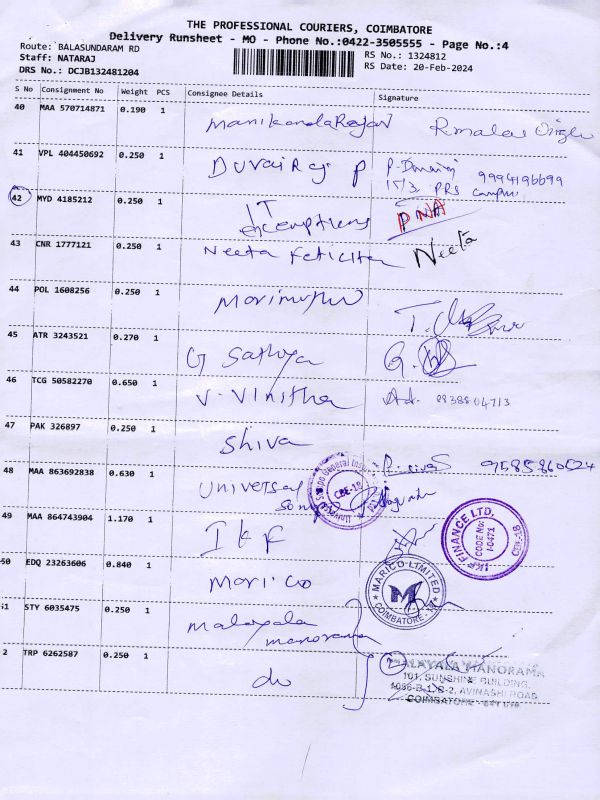 THE PROFESSIONAL COURIERS, COIMBATORE
Delivery Runsheet - MO - Phone No.:0422-3505555 - Page No.:4
Route: BALASUNDARAM RD
Staff: NATARAJ
DRS No.: DCJB132481204
RS No.: 1324812
RS Date: 20-Feb-2024
S No Consignment No Weight PCS Consignee Details Signature
40 MAA 570714871 0.190 1 ManikandaRajan
41 VPL 404450692 0.250 1 Durairaj P
15/3 PRS Campus
42 MYD 4185212 0.250 1 IT exemptions PNA
43 CNR 1777121 0.250 1 Neeta Neeta
44 POL 1608256 0.250 1 Marimuthu
45 ATR 3243521 0.270 1 G Sathya
46 TCG 50582270 0.650 1 V. Vinitha
47 PAK 326897 0.250 1 Shiva
48 MAA 863692838 0.630 1 Universal Sompo
CBE-18
49 MAA 864743904 1.170 1 IKF
IKF FINANCE LTD.
CODE No: I-0471
CBE-18
50 EDQ 23263606 0.840 1 Marico
MARICO LIMITED
M
COIMBATORE
51 STY 6035475 0.250 1 Malayala manorama
2 TRP 6262587 0.250 1 do
2
MALAYALA MANORAMA
101, SUNSHINE BUILDING,
1056-B-1, B-2, AVINASHI ROAD
COIMBATORE - 641 018